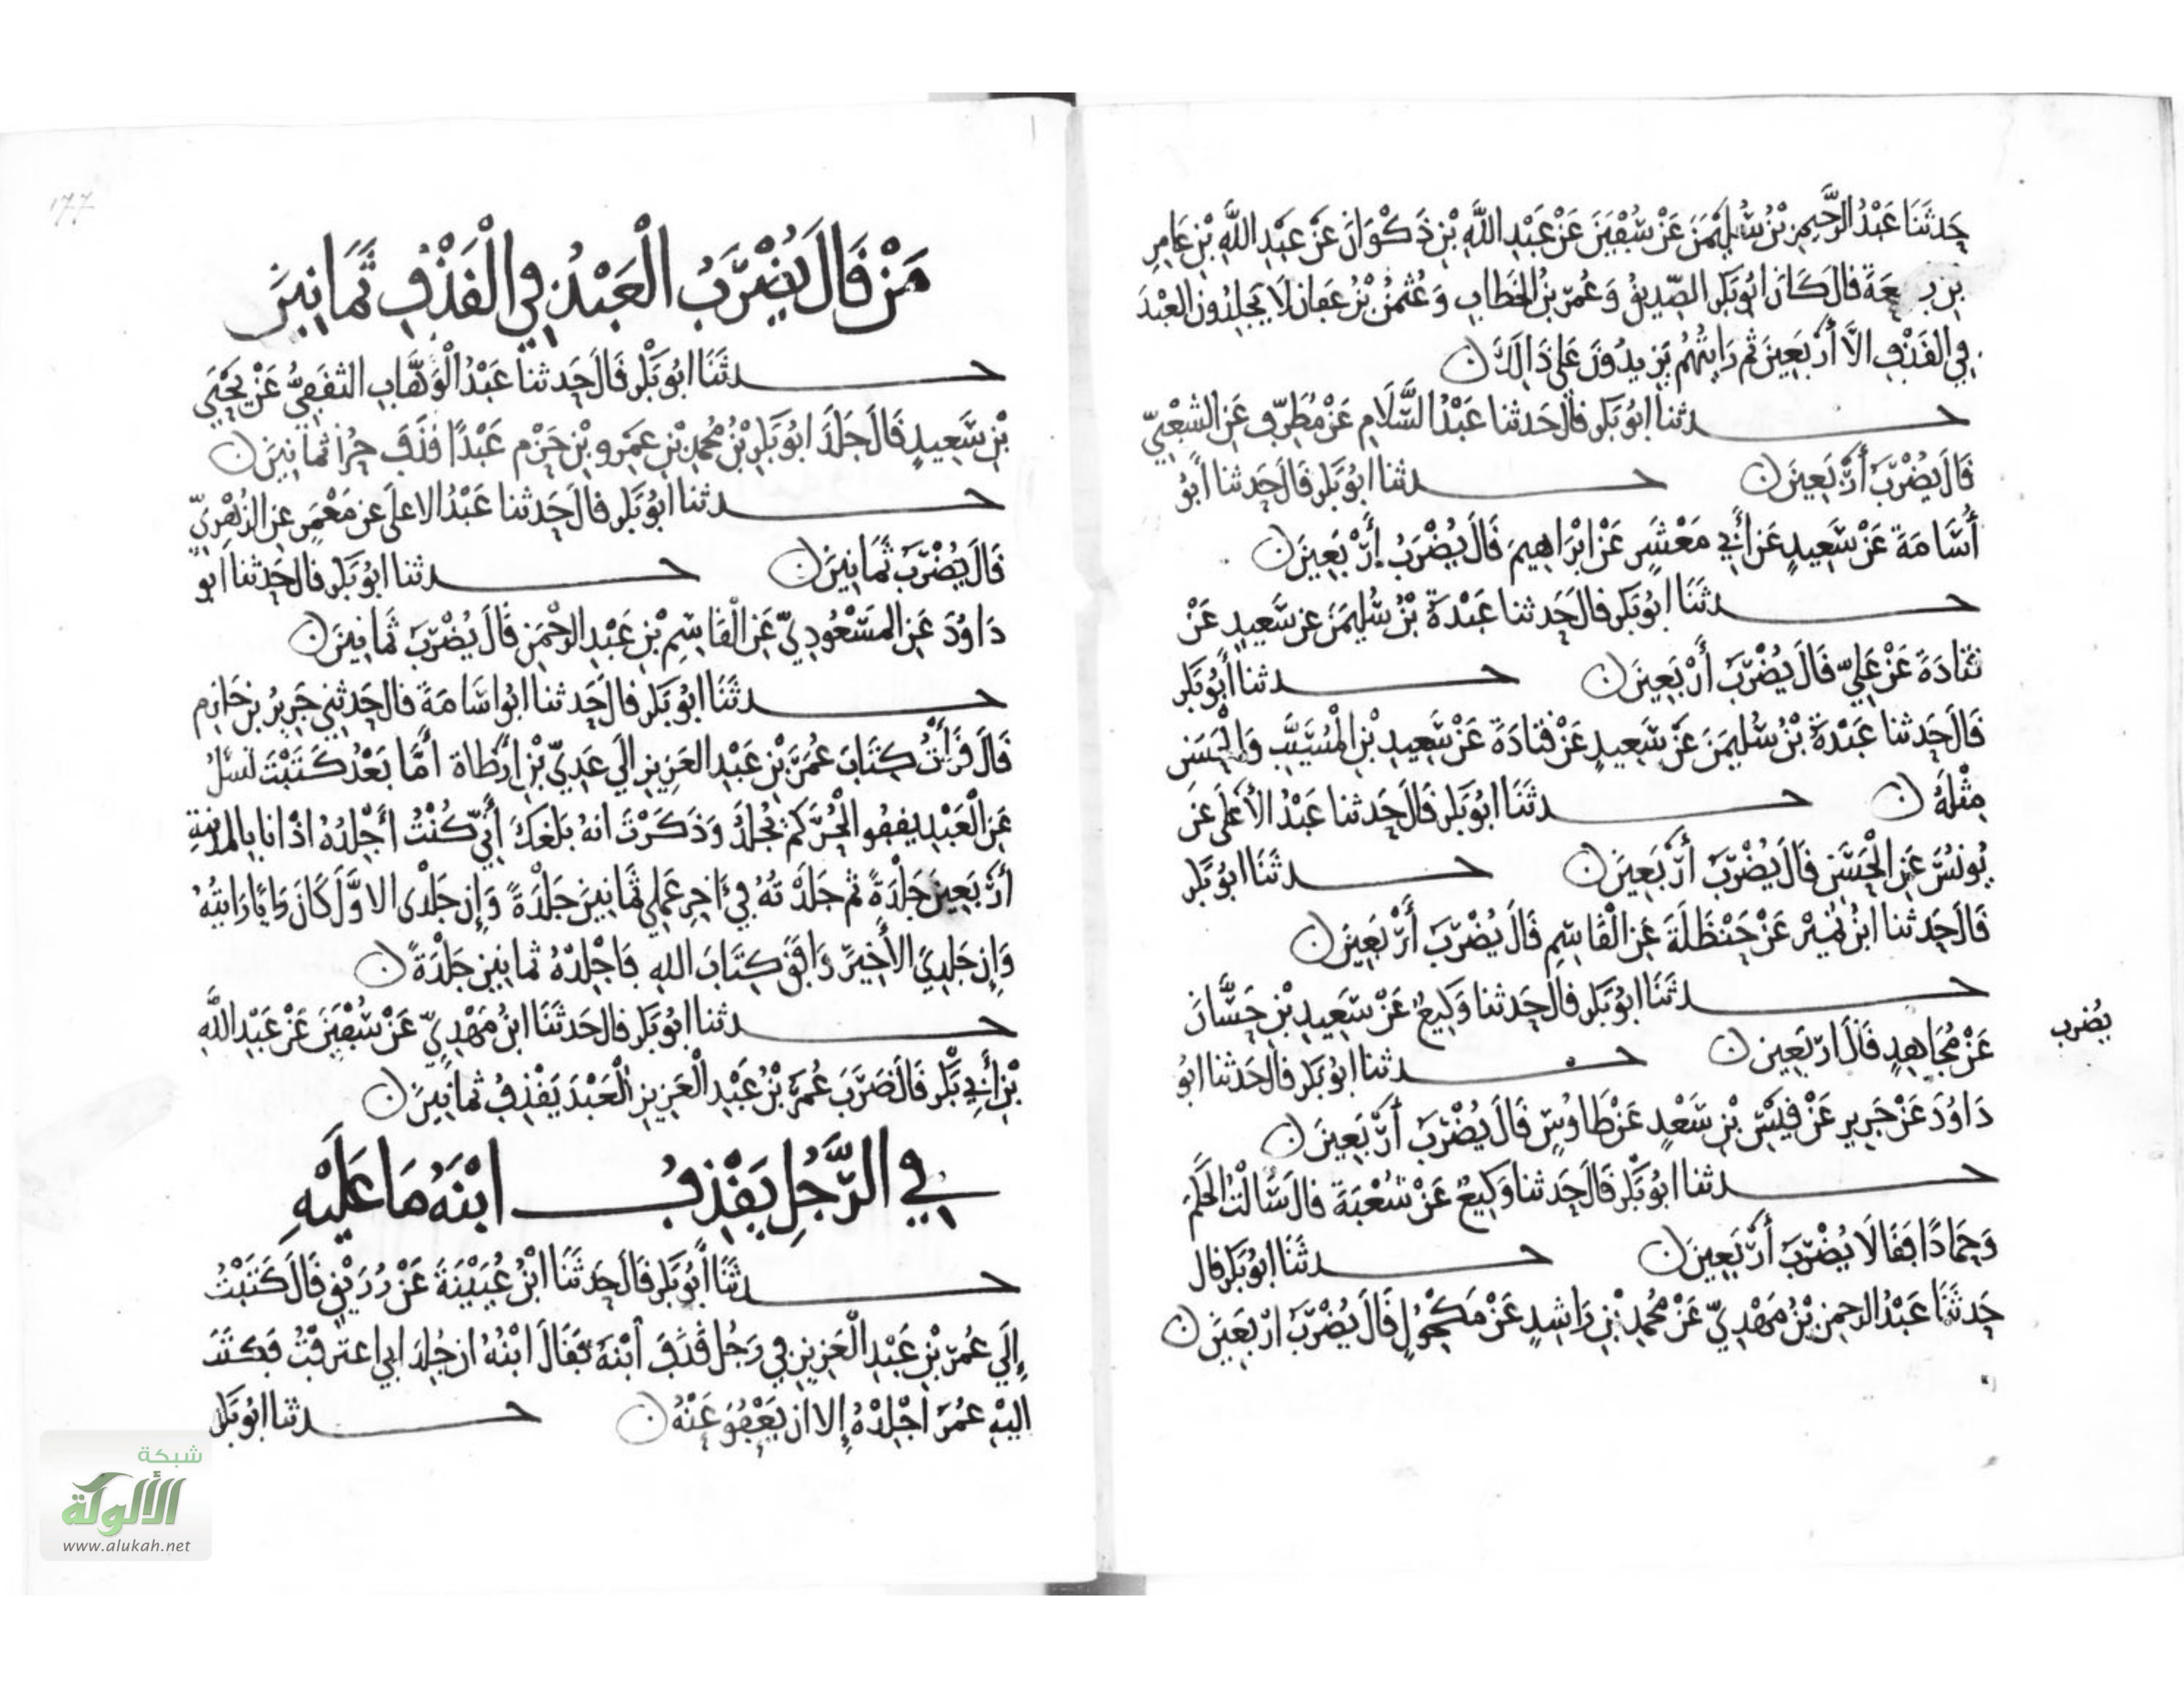 حَدثَنَا عَبْدُ الرَّحِيمِ بْنُ سُلَيْمٰنَ عَنْ سُفْيٰنَ عَنْ عَبْدِ اللَّهِ بْنِ ذَكْوَانَ عَنْ عَبْدِ اللَّهِ بْنِ عَامِرِ
بْنِ رَبِيعَةَ قَالَ كَانَ ابُو بَكرٍ الصِّدِيقُ وَعُمَرُ بْنُ الخَطابِ وَعُثمٰنُ بْنُ عَفانَ لَا يَجْلِدُونَ العَبْدَ
فِي القَذْفِ الَّا أَرْبَعِينَ ثُم رَايتُهُم يَزِيدُونَ عَلَى ذَالِكَ
حدثنا ابُو بَكرٍ قالَ حَدثنا عَبْدُ السَّلَامِ عَنْ مُطَرِّفٍ عَنِ الشَعْبِيِّ
قَالَ يُضْرَبُ أَرْبَعِينَ حدثنا ابُو بَكرٍ قَالَ حَدثنا أَبُو
أُسَامَةَ عَنْ سَعِيدٍ عَنْ أَبِي مَعْشَرٍ عَنْ ابْرَاهِيمَ قَالَ يُضْرَبُ أَرْبَعِينَ
حدثَنَا ابُو بَكرٍ قالَ حَدثنا عَبْدَةُ بْنُ سُلَيمٰنَ عن سَعِيدٍ عَنْ
قَتَادَةَ عَنْ عَلِيٍّ قَالَ يُضْرَبُ أَرْبَعِينَ حدثنا أَبُو بَكرٍ
قَالَ حَدثنا عَبْدَةُ بْنُ سُلَيمٰنَ عَنْ سَعِيدٍ عَنْ قتَادَةَ عَنْ سَعِيدِ بْنِ الْمُسَيَّبِ وَالْحَسَنِ
مِثْلَهُ حدثَنَا ابُو بَكرٍ قَالَ حَدثنا عَبْدُ الأَعْلَى عَنْ
يُونُسَ عَنِ الْحَسَنِ قَالَ يُضْرَبُ أَرْبَعِينَ حدثَنَا ابُو بَكرٍ
قَالَ حَدثنا ابْنُ نُمَيْرٍ عَنْ حَنْظَلَةَ عَنِ الْقَاسِمِ قَالَ يُضْرَبُ أَرْبَعِينَ
حدثَنَا ابُو بَكرٍ قالَ حَدثنا وَكِيعٌ عَنْ سَعِيدِ بْنِ حَسَّانَ
عَنْ مُجَاهِدٍ قَالَ ارْبَعِينَ حدثنا ابُو بَكرٍ قالَ حَدثنا ابُو
يُضرب
دَاوُدَ عَنْ جَرِيرٍ عَنْ قَيْسِ بْنِ سَعْدٍ عَنْ طَاوُسٍ قَالَ يُضْرَبُ أَرْبَعِينَ
حدثنا ابُو بَكرٍ قَالَ حَدثنا وَكِيعٌ عَنْ شُعْبَةَ قالَ سَالْتُ الحَكَمَ
وَحَمادًا فَقَالَا يُضْرَبُ أَرْبَعِينَ حدثَنَا ابُو بَكرٍ قال
حَدثَنَا عَبْدُ الرحمنِ بْنُ مَهْدِيٍّ عَنْ مُحمدِ بْنِ رَاشِدٍ عَنْ مَكْحُولٍ قَالَ يُضْرَبُ ارْبَعِينَ
١٧٧
مَنْ قَالَ يُضْرَبُ الْعَبْدُ فِي الْقَذْفِ ثَمَانِينَ
حدثَنَا ابُو بَكْرٍ قَالَ حَدثنا عَبْدُ الْوَهَّابِ الثقَفِيُّ عَنْ يَحْيَى
بْنِ سَعِيدٍ قَالَ جَلَدَ ابُو بَكرِ بْنُ مُحمدِ بْنِ عَمْرِو بْنِ حَزْمٍ عَبْدًا قَذَفَ حُرًا ثمانِينَ
حدثنا ابُو بَكرٍ قالَ حَدثنا عَبْدُ الاعلَى عن مَعْمَرٍ عنِ الزُهْرِيِّ
قَالَ يُضْرَبُ ثَمَانِينَ حدثنا ابُو بَكرٍ قالَ حَدثنا ابو
دَاوُدَ عَنِ المَسْعُودِيِّ عَنِ الْقَاسِمِ بْنِ عَبْدِ الرَّحْمٰنِ قَالَ يُضْرَبُ ثَمانِينَ
حدثَنَا ابُو بَكرٍ قالَ حَدثنا ابُو اسَامَةَ قالَ حَدثنِي جَرِيرُ بْنُ حَازِمٍ
قَالَ قَرَأتُ كِتَابَ عُمَرَ بْنِ عَبْدِ العَزِيزِ الَى عَدِيِّ بْنِ ارْطاةَ أَمَّا بَعْدُ كَتَبْتَ تسئلُ
عَنِ الْعَبْدِ يقفُو الْحُرَّ كَمْ يُجلَدُ وَذَكَرْتَ انهُ بَلَغَكَ أَنِّي كُنْتُ أَجْلِدُهُ اذْ انا بِالمدِينةِ
أَرْبَعِينَ جَلْدَةً ثُم جَلَدْتُهُ فِي ءَاخِرِ عَمَلِي ثَمَانِينَ جَلْدَةً وَإِن جَلْدِي الاوَّلَ كَانَ رَايًا رَايتُهُ
وَإِن جَلدِيَ الأَخِيرَ وَافَقَ كِتَابَ اللهِ فَاجْلِدْهُ ثمانِينَ جَلْدَةً
حدثنا ابُو بَكرٍ قالَ حَدثَنَا ابْنُ مَهْدِيٍّ عَنْ سُفْيٰنَ عَنْ عَبْدِ اللَّهِ
بْنِ أَبِي بَكْرٍ قَالَ ضَرَبَ عُمَرُ بْنُ عَبْدِ الْعَزِيزِ الْعَبْدَ يَقْذِفُ ثمانِينَ
فِي الرَّجُلِ يَقْذِفُ ابْنَهُ مَا عَلَيْهِ
حدثَنَا أَبُو بَكرٍ قالَ حَدثَنَا ابْنُ عُيَيْنَةَ عَنْ رُزَيْقٍ قَالَ كَتَبْتُ
إِلَى عُمَرَ بْنِ عَبْدِ الْعَزِيزِ فِي رَجُلٍ قَذَفَ ابْنَهُ فَقَالَ ابْنُهُ ان جُلِدَ ابِي اعترَفْتُ فكتَبَ
اليْهِ عُمَرُ اجْلِدْهُ إِلا ان يَعْفُوَ عَنْهُ حدثنا ابُو بَكرٍ
شبكة
الألوكة
www.alukah.net